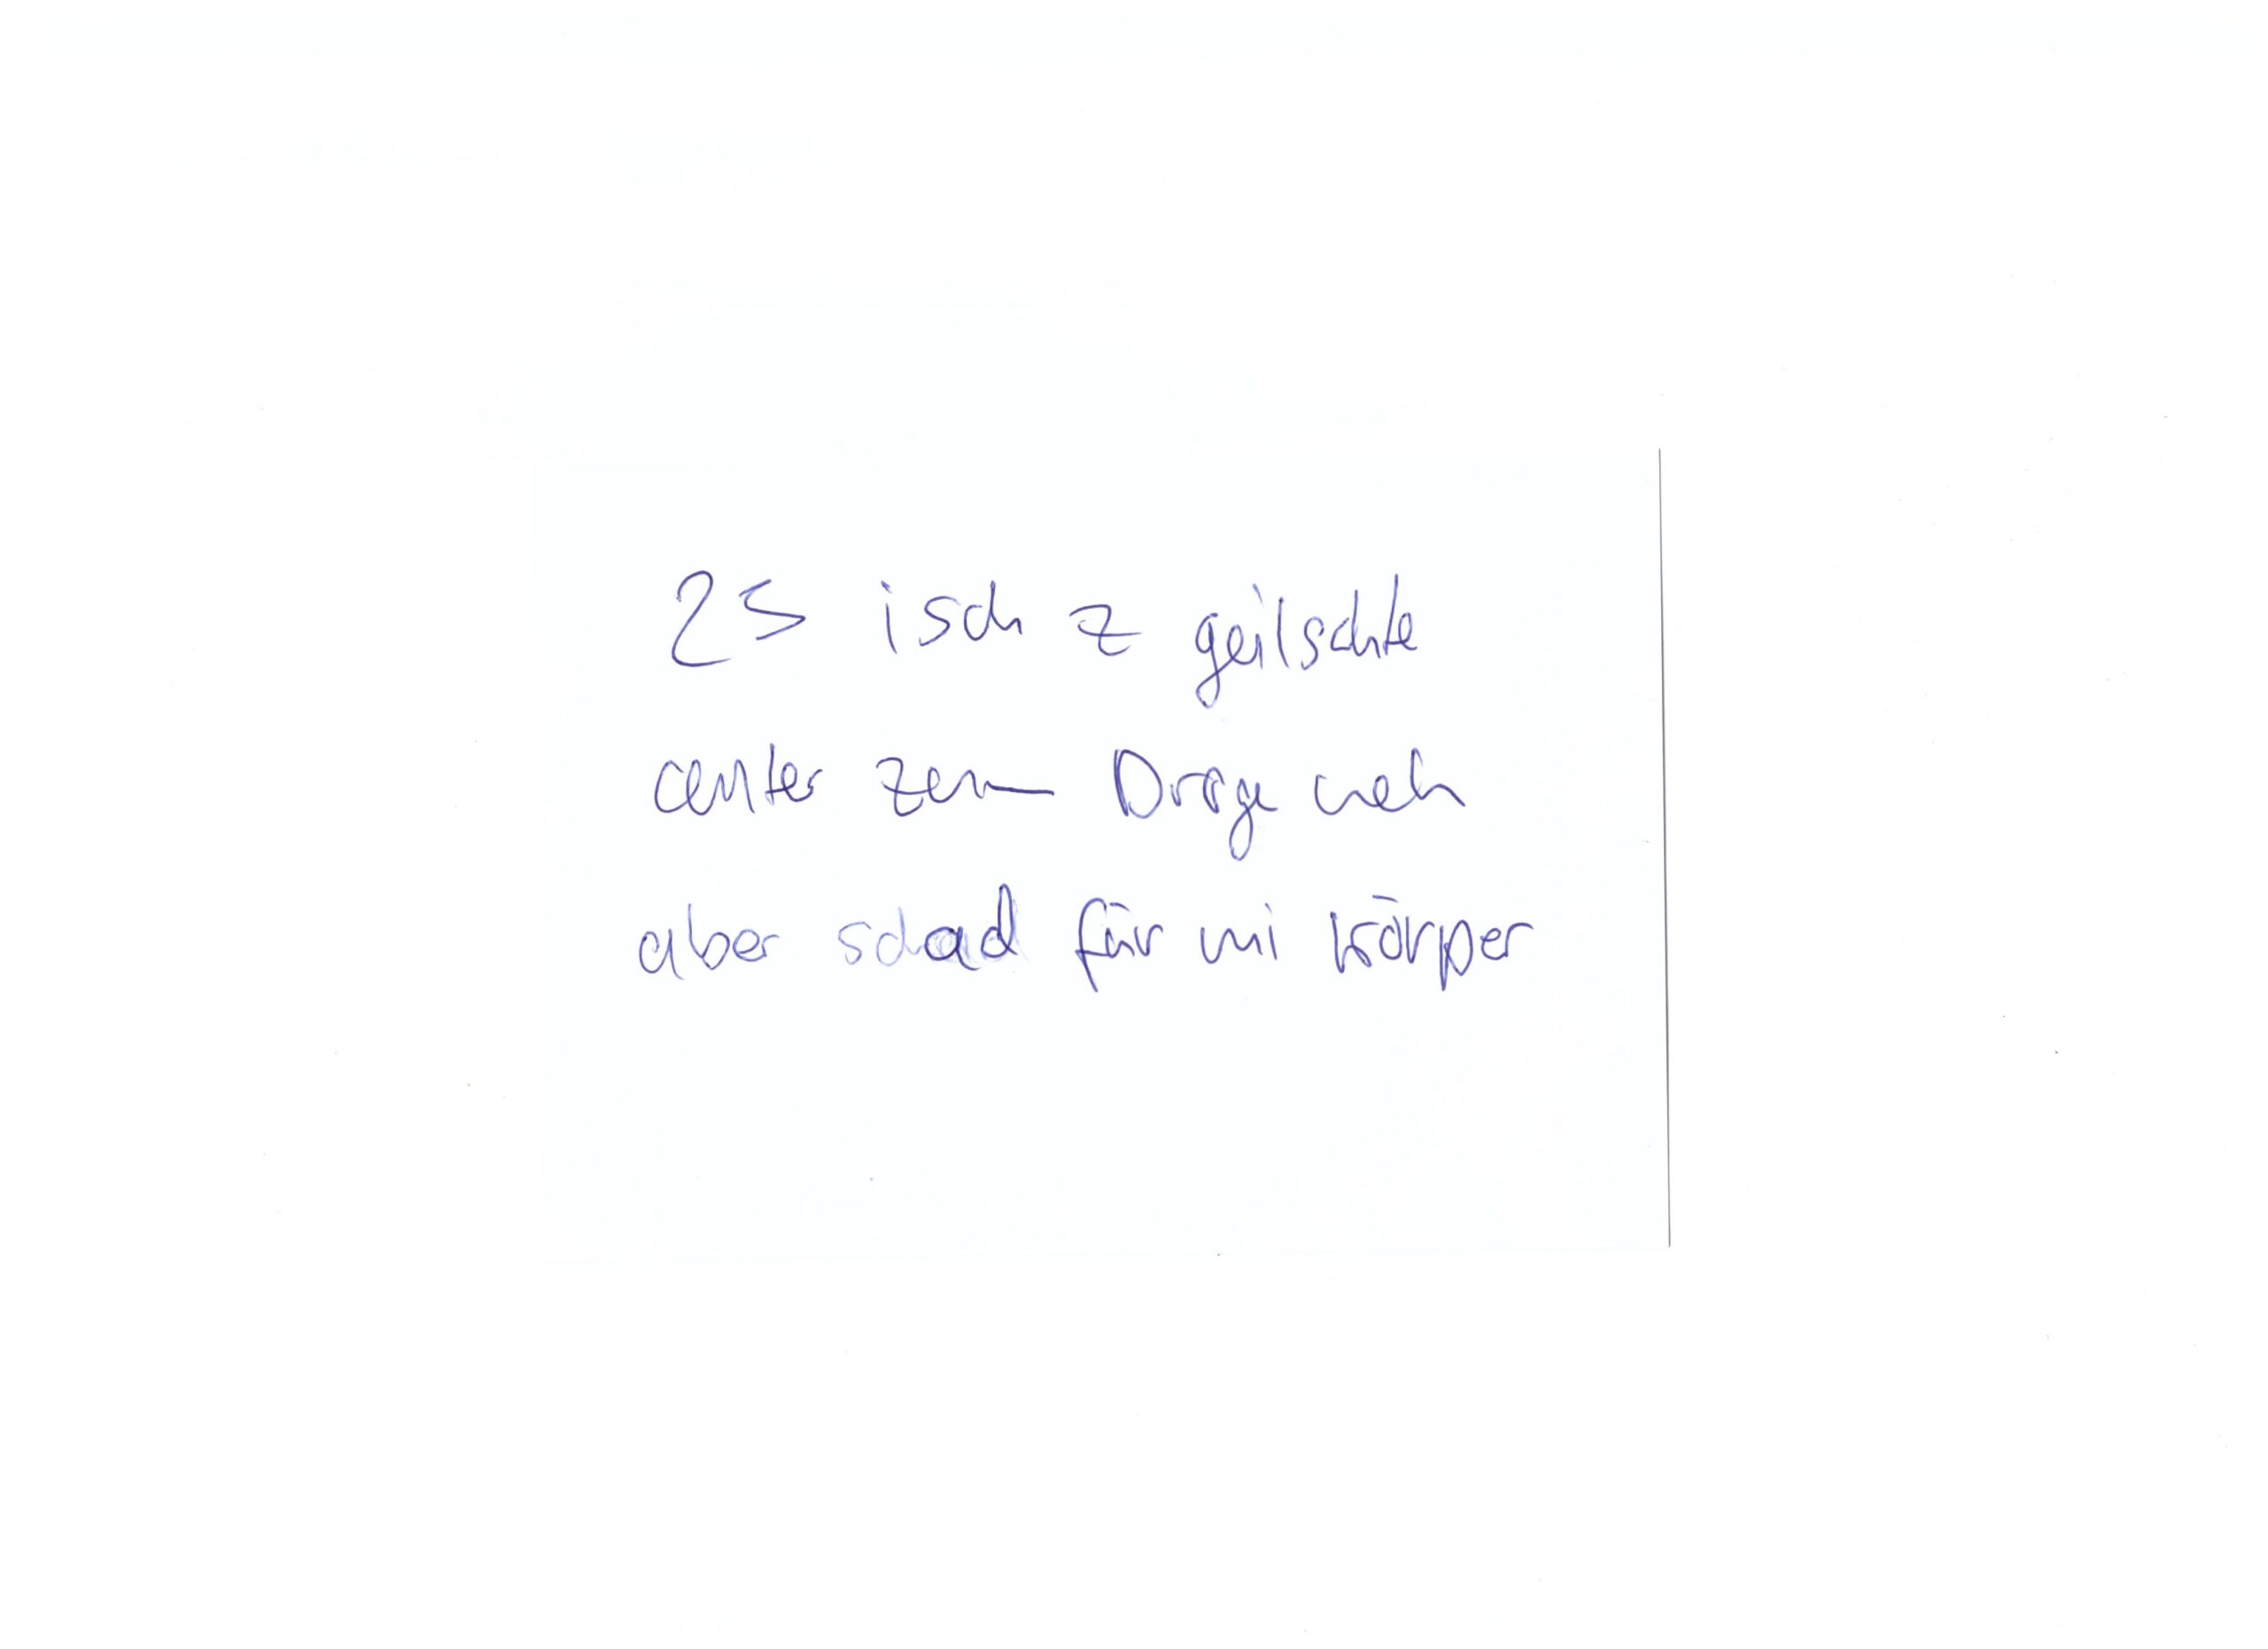 25 isch z geilschte
center zem Droge neh
aber schad für mi körper